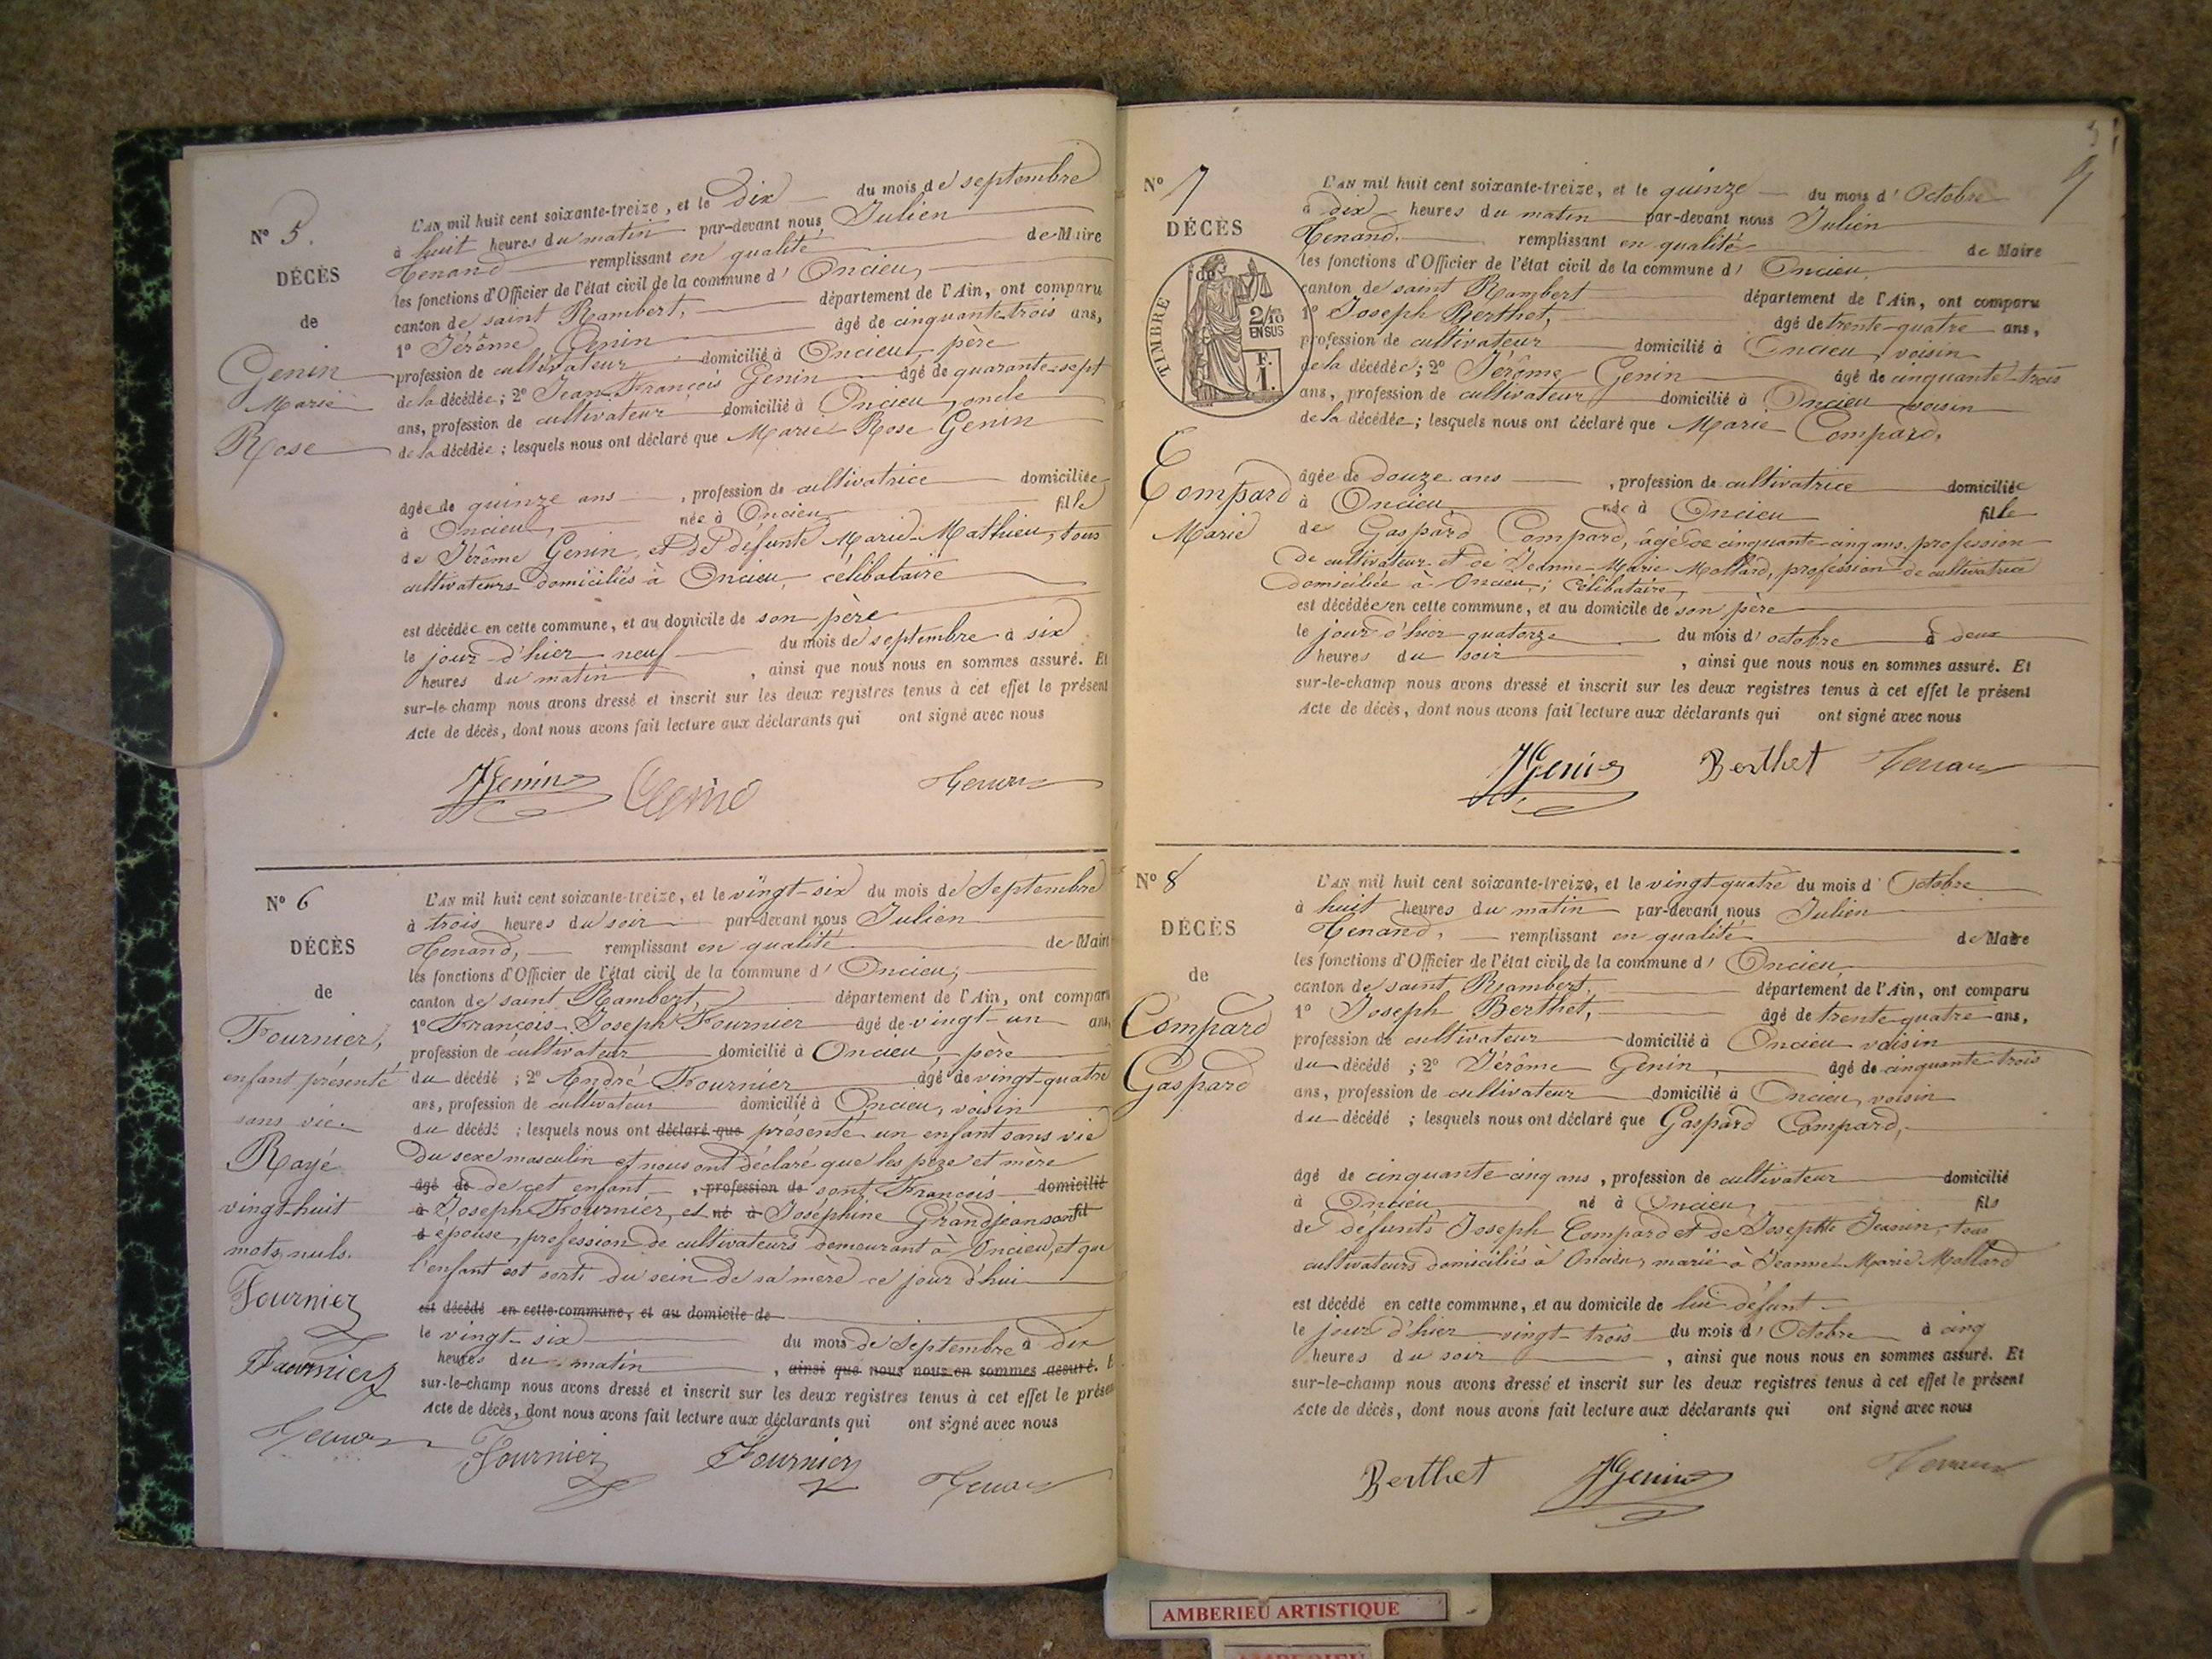 N° 5.
DÉCÈS
de
Genin
Marie
Rose
L'AN mil huit cent soixante-treize, et le Dix du mois de septembre
à huit heures du matin par-devant nous Julien
Tenand remplissant en qualité de Maire
les fonctions d'Officier de l'état civil de la commune d' Oncieu,
canton de saint Rambert, département de l'Ain, ont comparu
1° Jérôme Genin âgé de cinquante-trois ans,
profession de cultivateur domicilié à Oncieu père
de la décédée; 2° Jean François Genin âgé de quarante-sept
ans, profession de cultivateur domicilié à Oncieu, oncle
de la décédée; lesquels nous ont déclaré que Marie Rose Genin
âgée de quinze ans, profession de cultivatrice domiciliée
à Oncieu, née à Oncieu fille
de Jérôme Genin, et de défunte Marie Mathieu, tous
cultivateurs domiciliés à Oncieu, célibataire
est décédée en cette commune, et au domicile de son père
le jour d'hier neuf du mois de septembre à six
heures du matin, ainsi que nous nous en sommes assuré. Et
sur-le-champ nous avons dressé et inscrit sur les deux registres tenus à cet effet le présent
Acte de décès, dont nous avons fait lecture aux déclarants qui ont signé avec nous
JGenin Genin Tenand
N° 6
DÉCÈS
de
Fournier,
enfant présenté
sans vie.
Rayé
vingt-huit
mots nuls.
Fournier
Fournier
Tenand
L'AN mil huit cent soixante-treize, et le vingt-six du mois de Septembre
à trois heures du soir par-devant nous Julien
Tenand, remplissant en qualité de Maire
les fonctions d'Officier de l'état civil de la commune d' Oncieu,
canton de saint Rambert, département de l'Ain, ont comparu
1° François Joseph Fournier âgé de vingt-un ans,
profession de cultivateur domicilié à Oncieu, père
du décédé; 2° André Fournier âgé de vingt-quatre
ans, profession de cultivateur domicilié à Oncieu, voisin
du décédé; lesquels nous ont déclaré que présenté un enfant sans vie
du sexe masculin et nous ont déclaré que les père et mère
âgé de de cet enfant, profession de sont François domicilié
à Joseph Fournier, et né à Joséphine Grandjean son fil
d épouse, profession de cultivateurs demeurant à Oncieu, et que
l'enfant est sorti du sein de sa mère ce jour d'hui
est décédé en cette commune, et au domicile de
le vingt-six du mois de Septembre à dix
heures du matin, ainsi que nous nous en sommes assuré. E
sur-le-champ nous avons dressé et inscrit sur les deux registres tenus à cet effet le présen
Acte de décès, dont nous avons fait lecture aux déclarants qui ont signé avec nous
Fournier Fournier Tenand
N° 7
DÉCÈS
de
TIMBRE
2/10 EN SUS
F. 1.
Compard
Marie
L'AN mil huit cent soixante-treize, et le quinze du mois d' Octobre
à dix heures du matin par-devant nous Julien
Tenand. remplissant en qualité de Maire
les fonctions d'Officier de l'état civil de la commune d' Oncieu,
canton de saint Rambert département de l'Ain, ont comparu
1° Joseph Berthet, âgé de trente-quatre ans,
profession de cultivateur domicilié à Oncieu, voisin
de la décédée; 2° Jérôme Genin âgé de cinquante-trois
ans, profession de cultivateur domicilié à Oncieu voisin
de la décédée; lesquels nous ont déclaré que Marie Compard,
âgée de douze ans, profession de cultivatrice domiciliée
à Oncieu, née à Oncieu fille
de Gaspard Compard, âgé de cinquante-cinq ans, profession
de cultivateur et de Jeanne-Marie Mollard, profession de cultivatrice
domiciliée à Oncieu; célibataire,
est décédée en cette commune, et au domicile de son père
le jour d'hier quatorze du mois d' octobre à deux
heures du soir, ainsi que nous nous en sommes assuré. Et
sur-le-champ nous avons dressé et inscrit sur les deux registres tenus à cet effet le présent
Acte de décès, dont nous avons fait lecture aux déclarants qui ont signé avec nous
JGenin Berthet Tenand
N° 8
DÉCÈS
de
Compard
Gaspard
L'AN mil huit cent soixante-treize, et le vingt-quatre du mois d' Octobre
à huit heures du matin par-devant nous Julien
Tenand, remplissant en qualité de Maire
les fonctions d'Officier de l'état civil de la commune d' Oncieu,
canton de saint Rambert, département de l'Ain, ont comparu
1° Joseph Berthet, âgé de trente-quatre ans,
profession de cultivateur domicilié à Oncieu voisin
du décédé; 2° Jérôme Genin, âgé de cinquante-trois
ans, profession de cultivateur domicilié à Oncieu, voisin
du décédé; lesquels nous ont déclaré que Gaspard Compard,
âgé de cinquante-cinq ans, profession de cultivateur domicilié
à Oncieu né à Oncieu, fils
de défunts Joseph Compard et de Josephte Jeanin, tous
cultivateurs domiciliés à Oncieu, marié à Jeanne-Marie Mollard
est décédé en cette commune, et au domicile de lui défunt
le jour d'hier vingt-trois du mois d' Octobre à cinq
heures du soir, ainsi que nous nous en sommes assuré. Et
sur-le-champ nous avons dressé et inscrit sur les deux registres tenus à cet effet le présent
Acte de décès, dont nous avons fait lecture aux déclarants qui ont signé avec nous
Berthet JGenin Tenand
AMBERIEU ARTISTIQUE
AMBERIEU